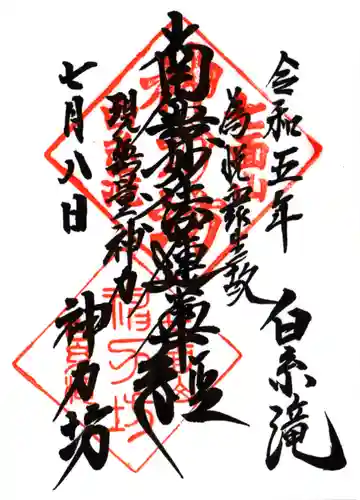 令和五年
白糸滝
為悦衆生故
南無妙法蓮華経
現無量神力
七月八日
神力坊